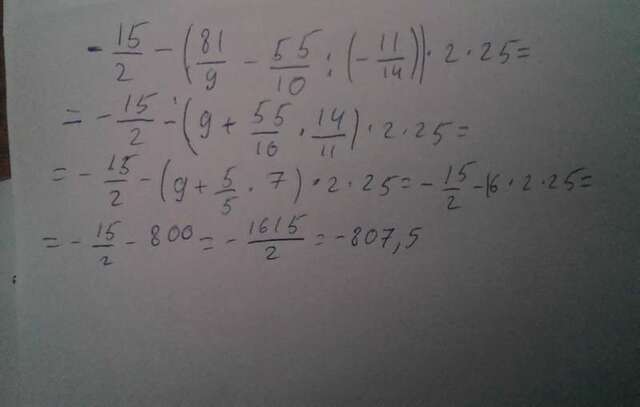 -15/2 - (81/9 - 55/10 : (-11/14)) · 2 · 25 =
= -15/2 - (9 + 55/10 · 14/11) · 2 · 25 =
= -15/2 - (9 + 5/5 · 7) · 2 · 25 = -15/2 - 16 · 2 · 25 =
= -15/2 - 800 = -1615/2 = -807,5